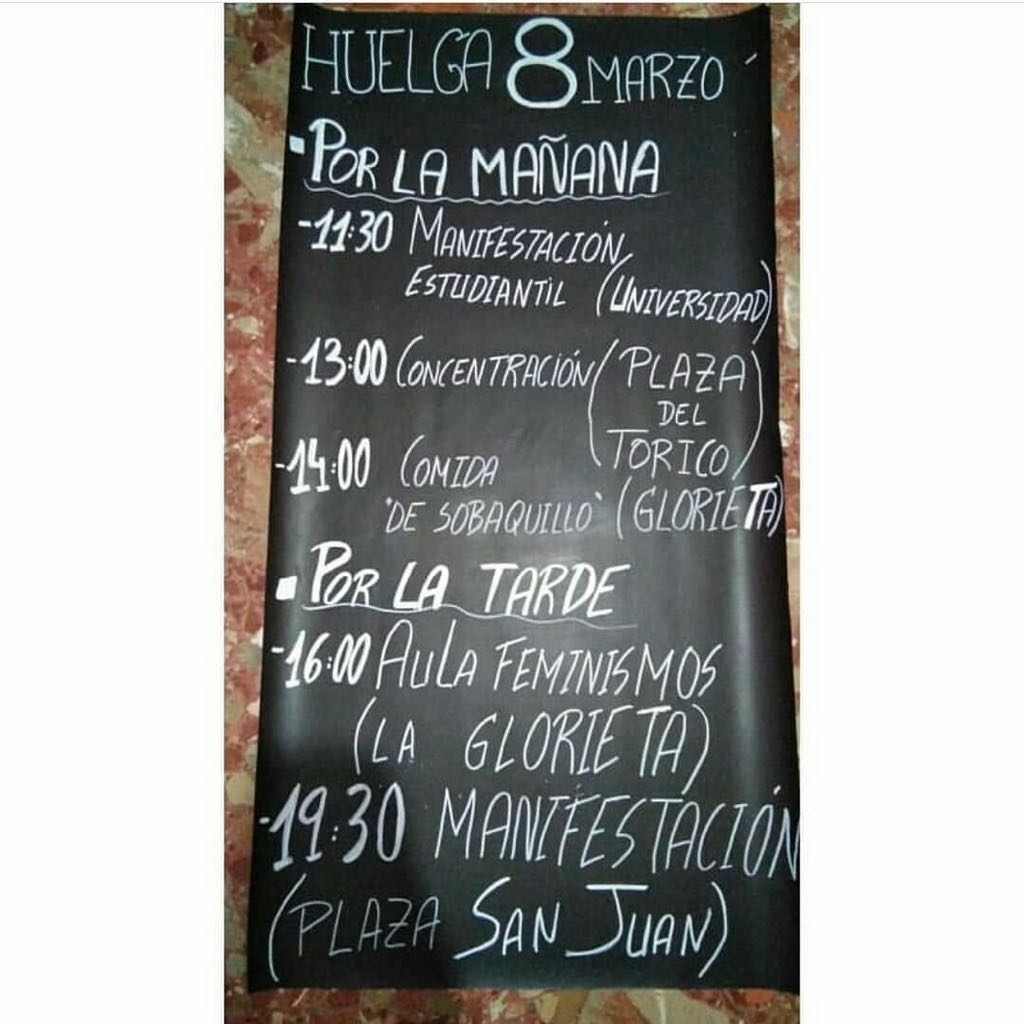 HUELGA 8 MARZO
▪ POR LA MAÑANA
-11:30 MANIFESTACIÓN
ESTUDIANTIL (UNIVERSIDAD)
-13:00 CONCENTRACIÓN (PLAZA
DEL
TORICO)
-14:00 COMIDA
"DE SOBAQUILLO" (GLORIETA)
▪ POR LA TARDE
-16:00 AULA FEMINISMOS
(LA GLORIETA)
-19:30 MANIFESTACIÓN
(PLAZA SAN JUAN)